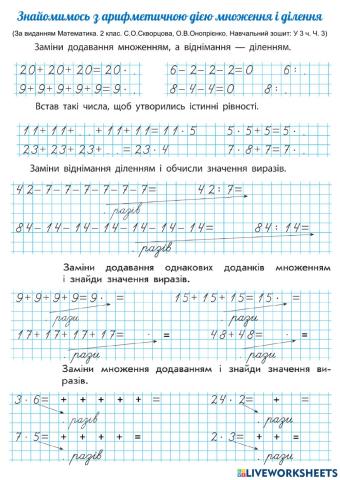 Знайомимось з арифметичною дією множення і ділення
(За виданням Математика. 2 клас. С.О.Скворцова, О.В.Онопрієнко. Навчальний зошит: У 3 ч. Ч. 3)
Заміни додавання множенням, а віднімання — діленням.
20+20+20=20· . 6-2-2-2=0 6: .
9+9+9+9+9=9· . 8-4-4=0 8: .
Встав такі числа, щоб утворились істинні рівності.
11+11+ . . +11+11=11·5 5·5+5=5· .
23+23+23+ . . =23·4 7·8+7=7· .
Заміни віднімання діленням і обчисли значення виразів.
42-7-7-7-7-7-7= 42:7=
. разів
84-14-14-14-14-14-14= 84:14=
. разів
Заміни додавання однакових доданків множенням
і знайди значення виразів.
9+9+9+9=9· = 15+15+15=15· . =
. рази . рази
17+17+17+17= · = 48+48= · =
. рази . рази
Заміни множення додаванням і знайди значення ви-
разів.
3·6= + + + + + = 24·2= + =
. разів . рази
7·5= + + + + = 2·3= + + =
. разів . рази
LIVEWORKSHEETS